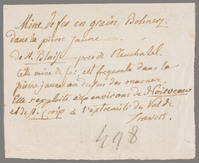 Mine de fer en grains Bohnerz
dans la pierre jaune
de St. Blaise près de Neuchatel.
Cette mine de fer est frequente dans la
pierre jaune au dessus des marnes.
Elle exploite aux environs de
et de Ste. Croix a l'extremité du Val de
Travers.
498